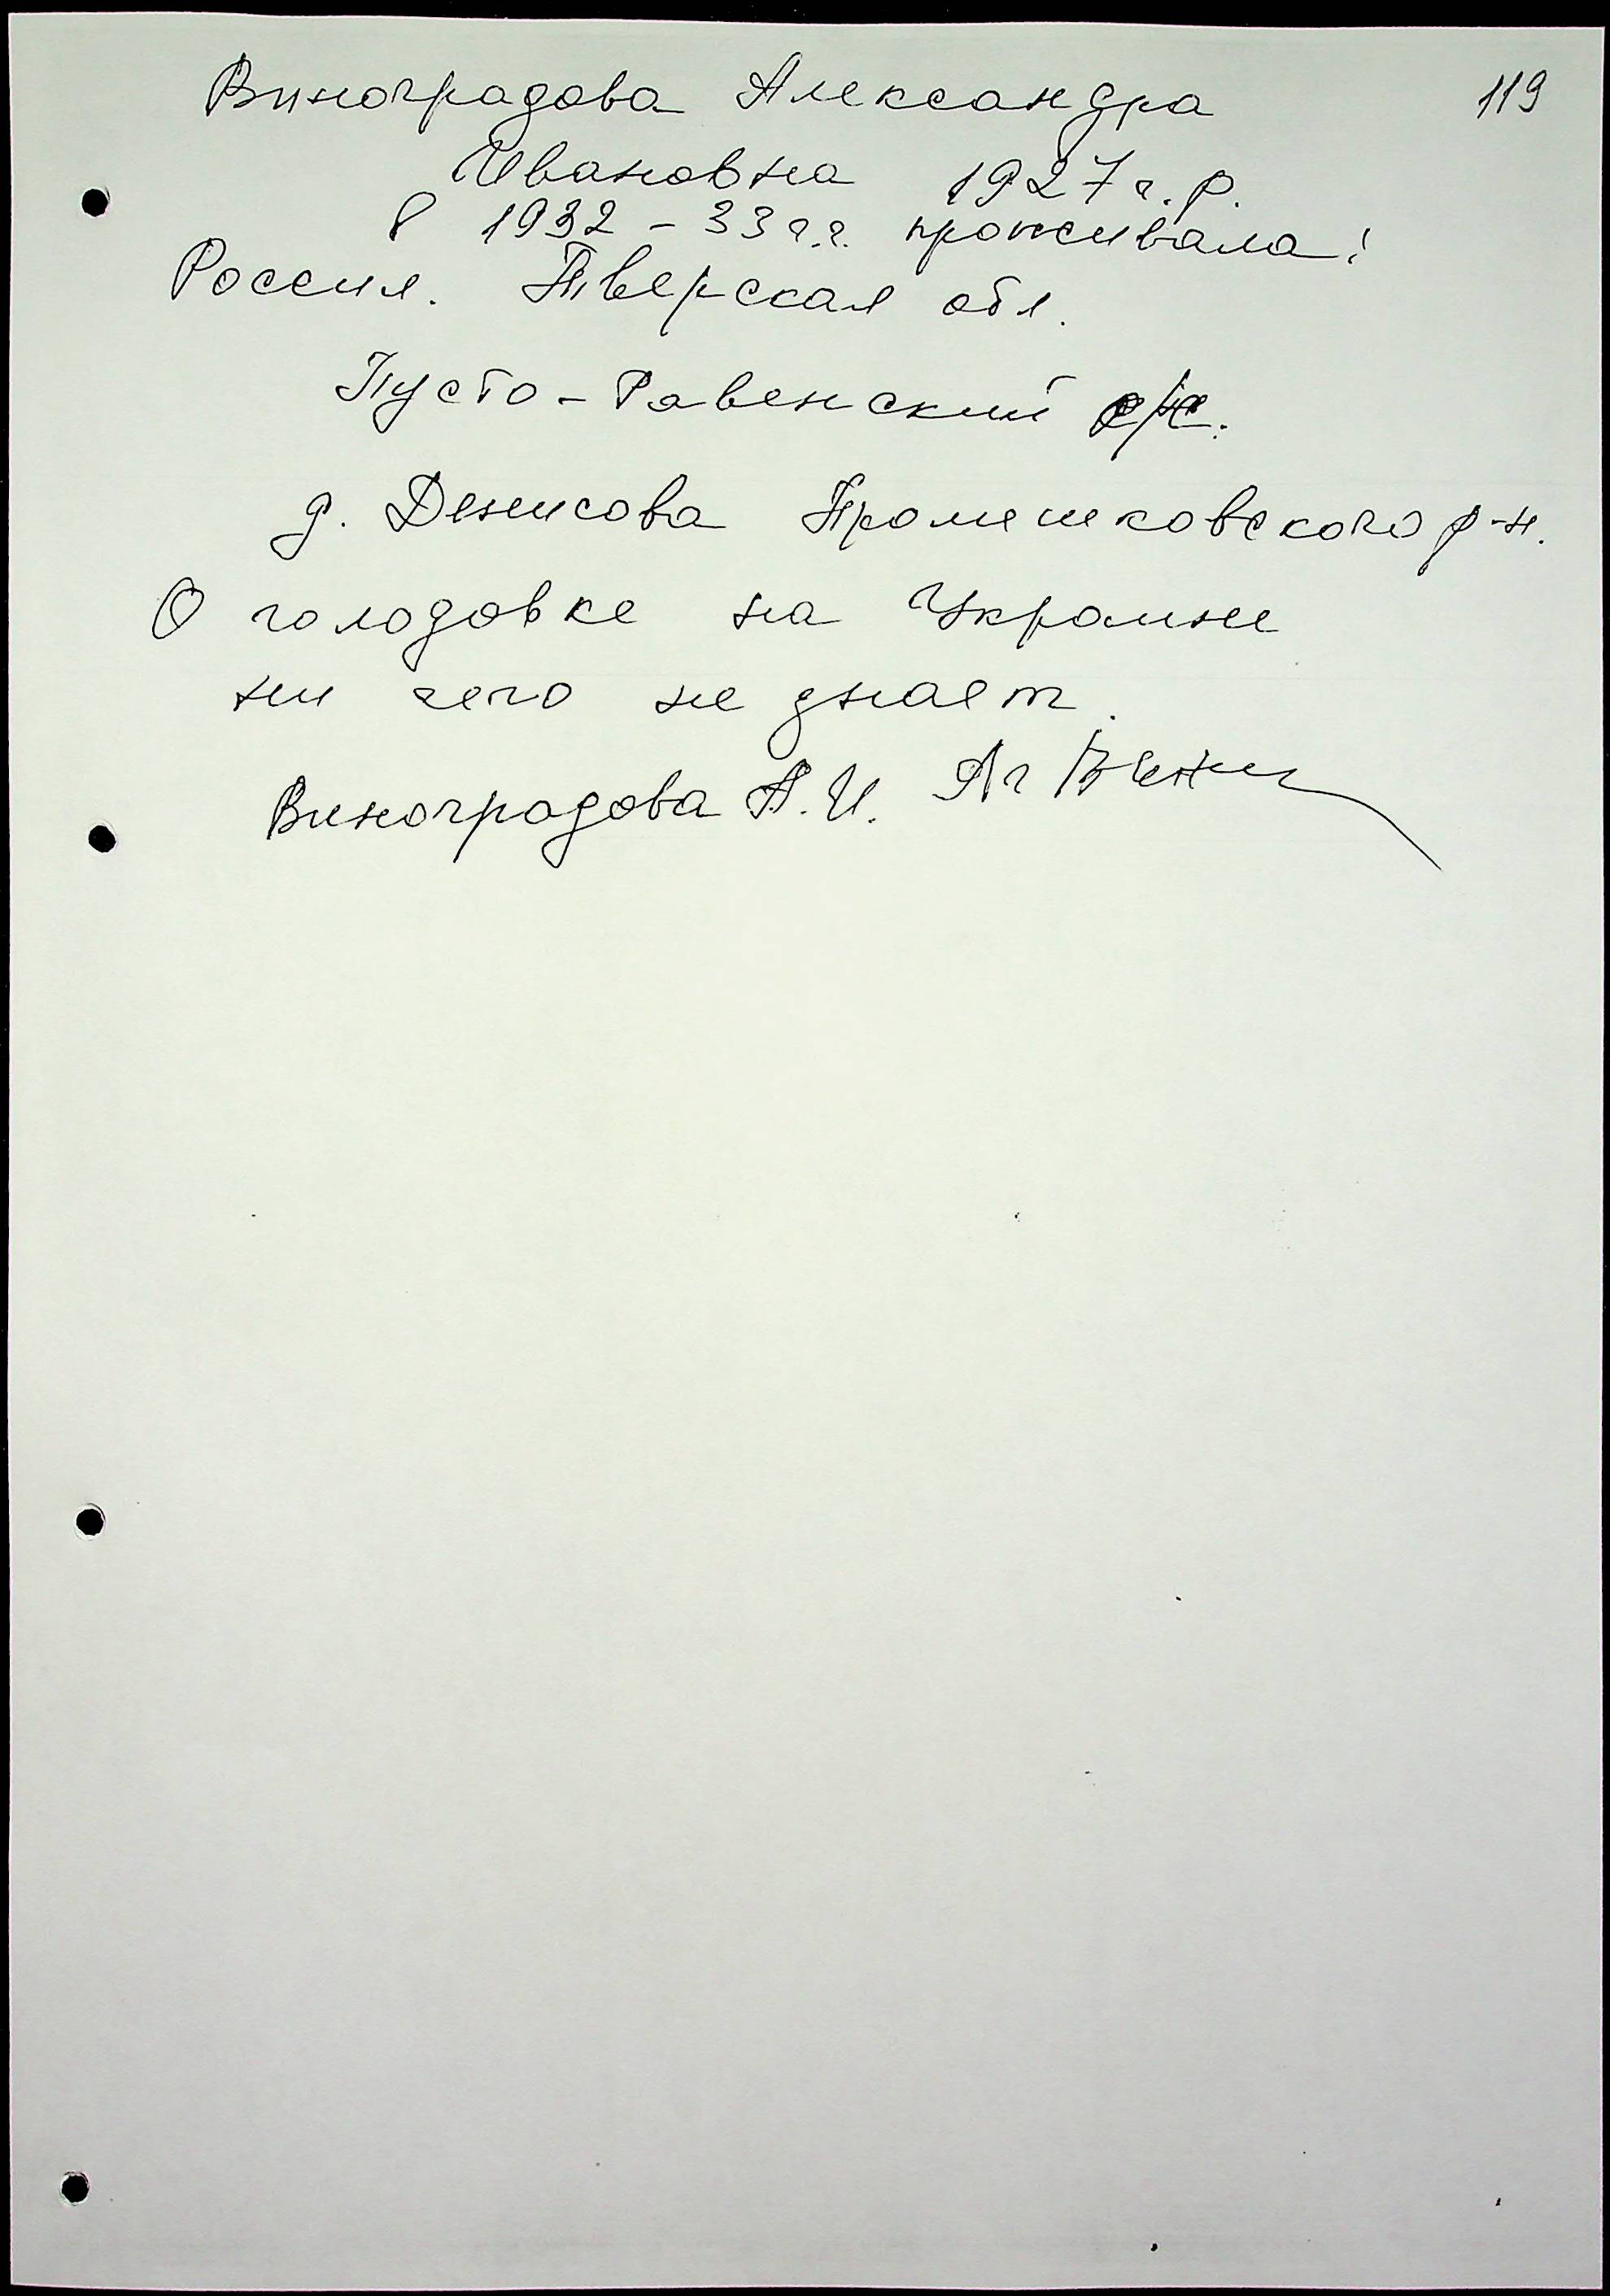 Виноградова Александра 119
Ивановна 1927 г. р.
В 1932 - 33 г.г. проживала:
Россия. Тверская обл.
Пусто-Равенский с/с.
д. Денисова Промешковского р-н.
О голодовке на Украине
ни чего не знает.
Виноградова А. И.